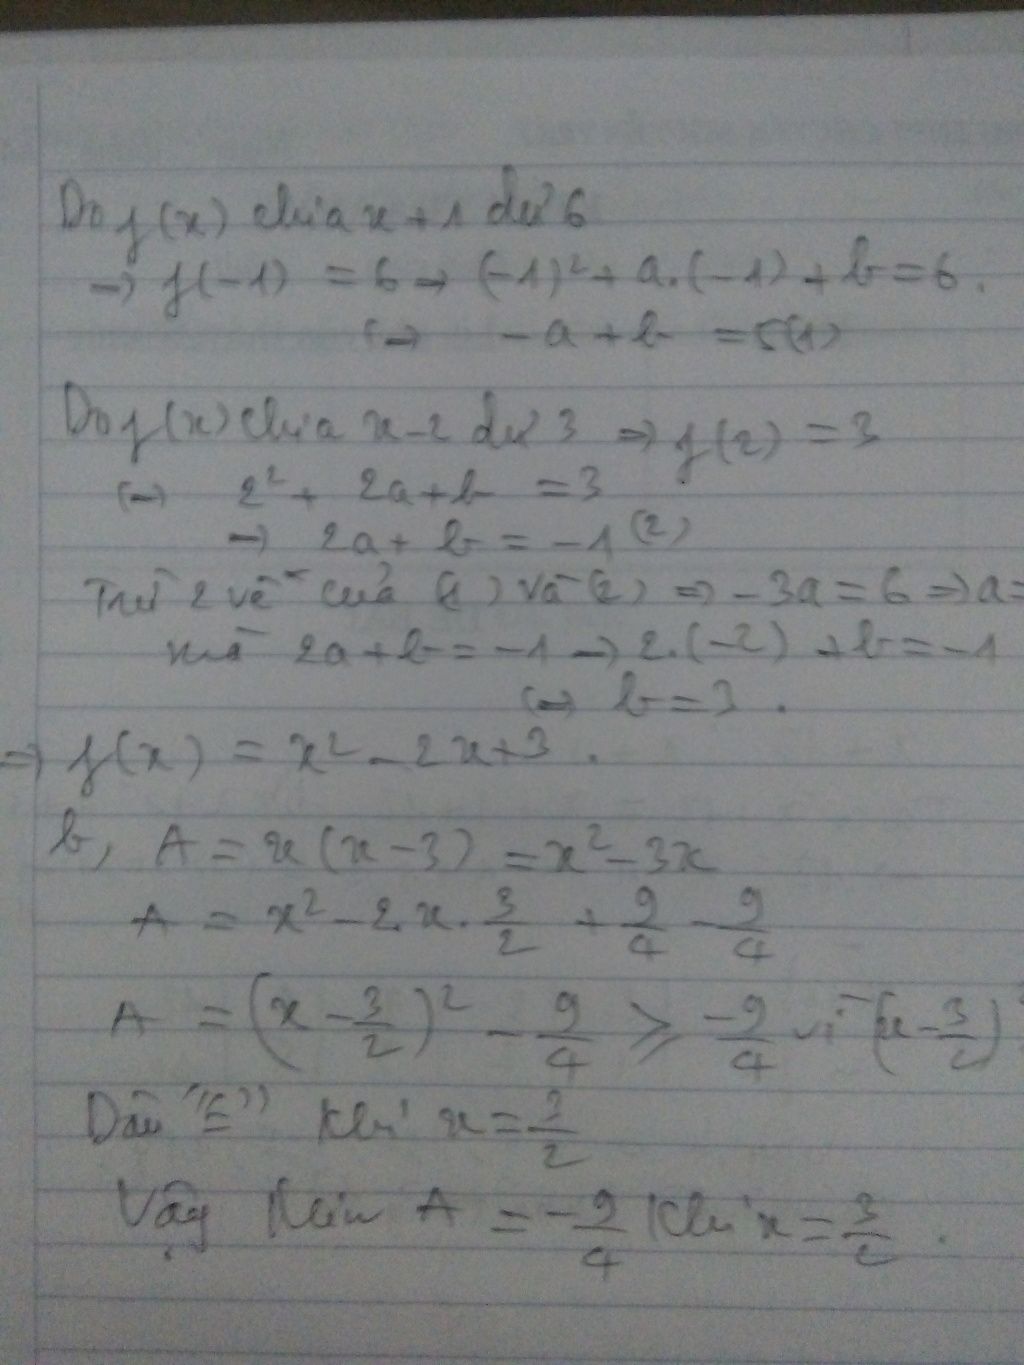 Do f(x) chia x + 1 dư 6
=> f(-1) = 6 => (-1)² + a.(-1) + b = 6.
<=> -a + b = 5 (1)
Do f(x) chia x - 2 dư 3 => f(2) = 3
<=> 2² + 2a + b = 3
=> 2a + b = -1 (2)
Trừ 2 vế của (1) và (2) => -3a = 6 => a =
mà 2a + b = -1 => 2.(-2) + b = -1
<=> b = 3.
=> f(x) = x² - 2x + 3.
b, A = x(x - 3) = x² - 3x
A = x² - 2.x.3/2 + 9/4 - 9/4
A = (x - 3/2)² - 9/4 ≥ -9/4 vì (x - 3/2)
Dấu "=" khi x = 3/2
Vậy Min A = -9/4 khi x = 3/2.